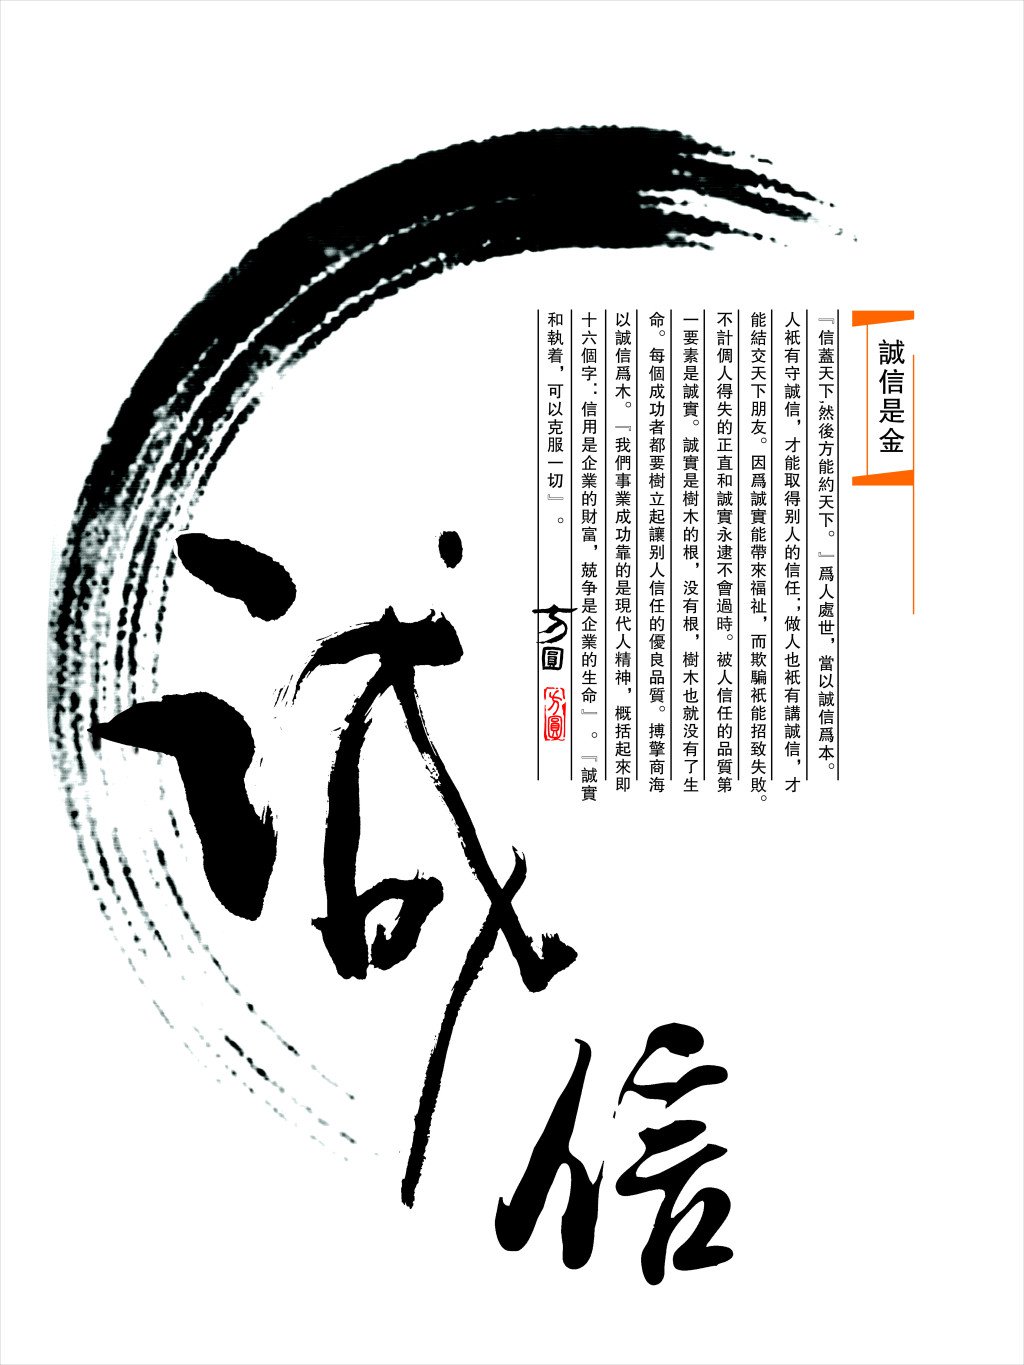 誠信是金
『信蓋天下,然後方能約天下。』爲人處世，當以誠信爲本。
人衹有守誠信，才能取得别人的信任；做人也衹有講誠信，才
能結交天下朋友。因爲誠實能帶來福祉，而欺騙衹能招致失敗。
不計個人得失的正直和誠實永逮不會過時。被人信任的品質第
一要素是誠實。誠實是樹木的根，没有根，樹木也就没有了生
命。每個成功者都要樹立起讓别人信任的優良品質。搏擎商海
以誠信爲木。『我們事業成功靠的是現代人精神，概括起來即
十六個字：信用是企業的財富，兢争是企業的生命』。『誠實
和執着，可以克服一切』。
方圓
方圓
誠信